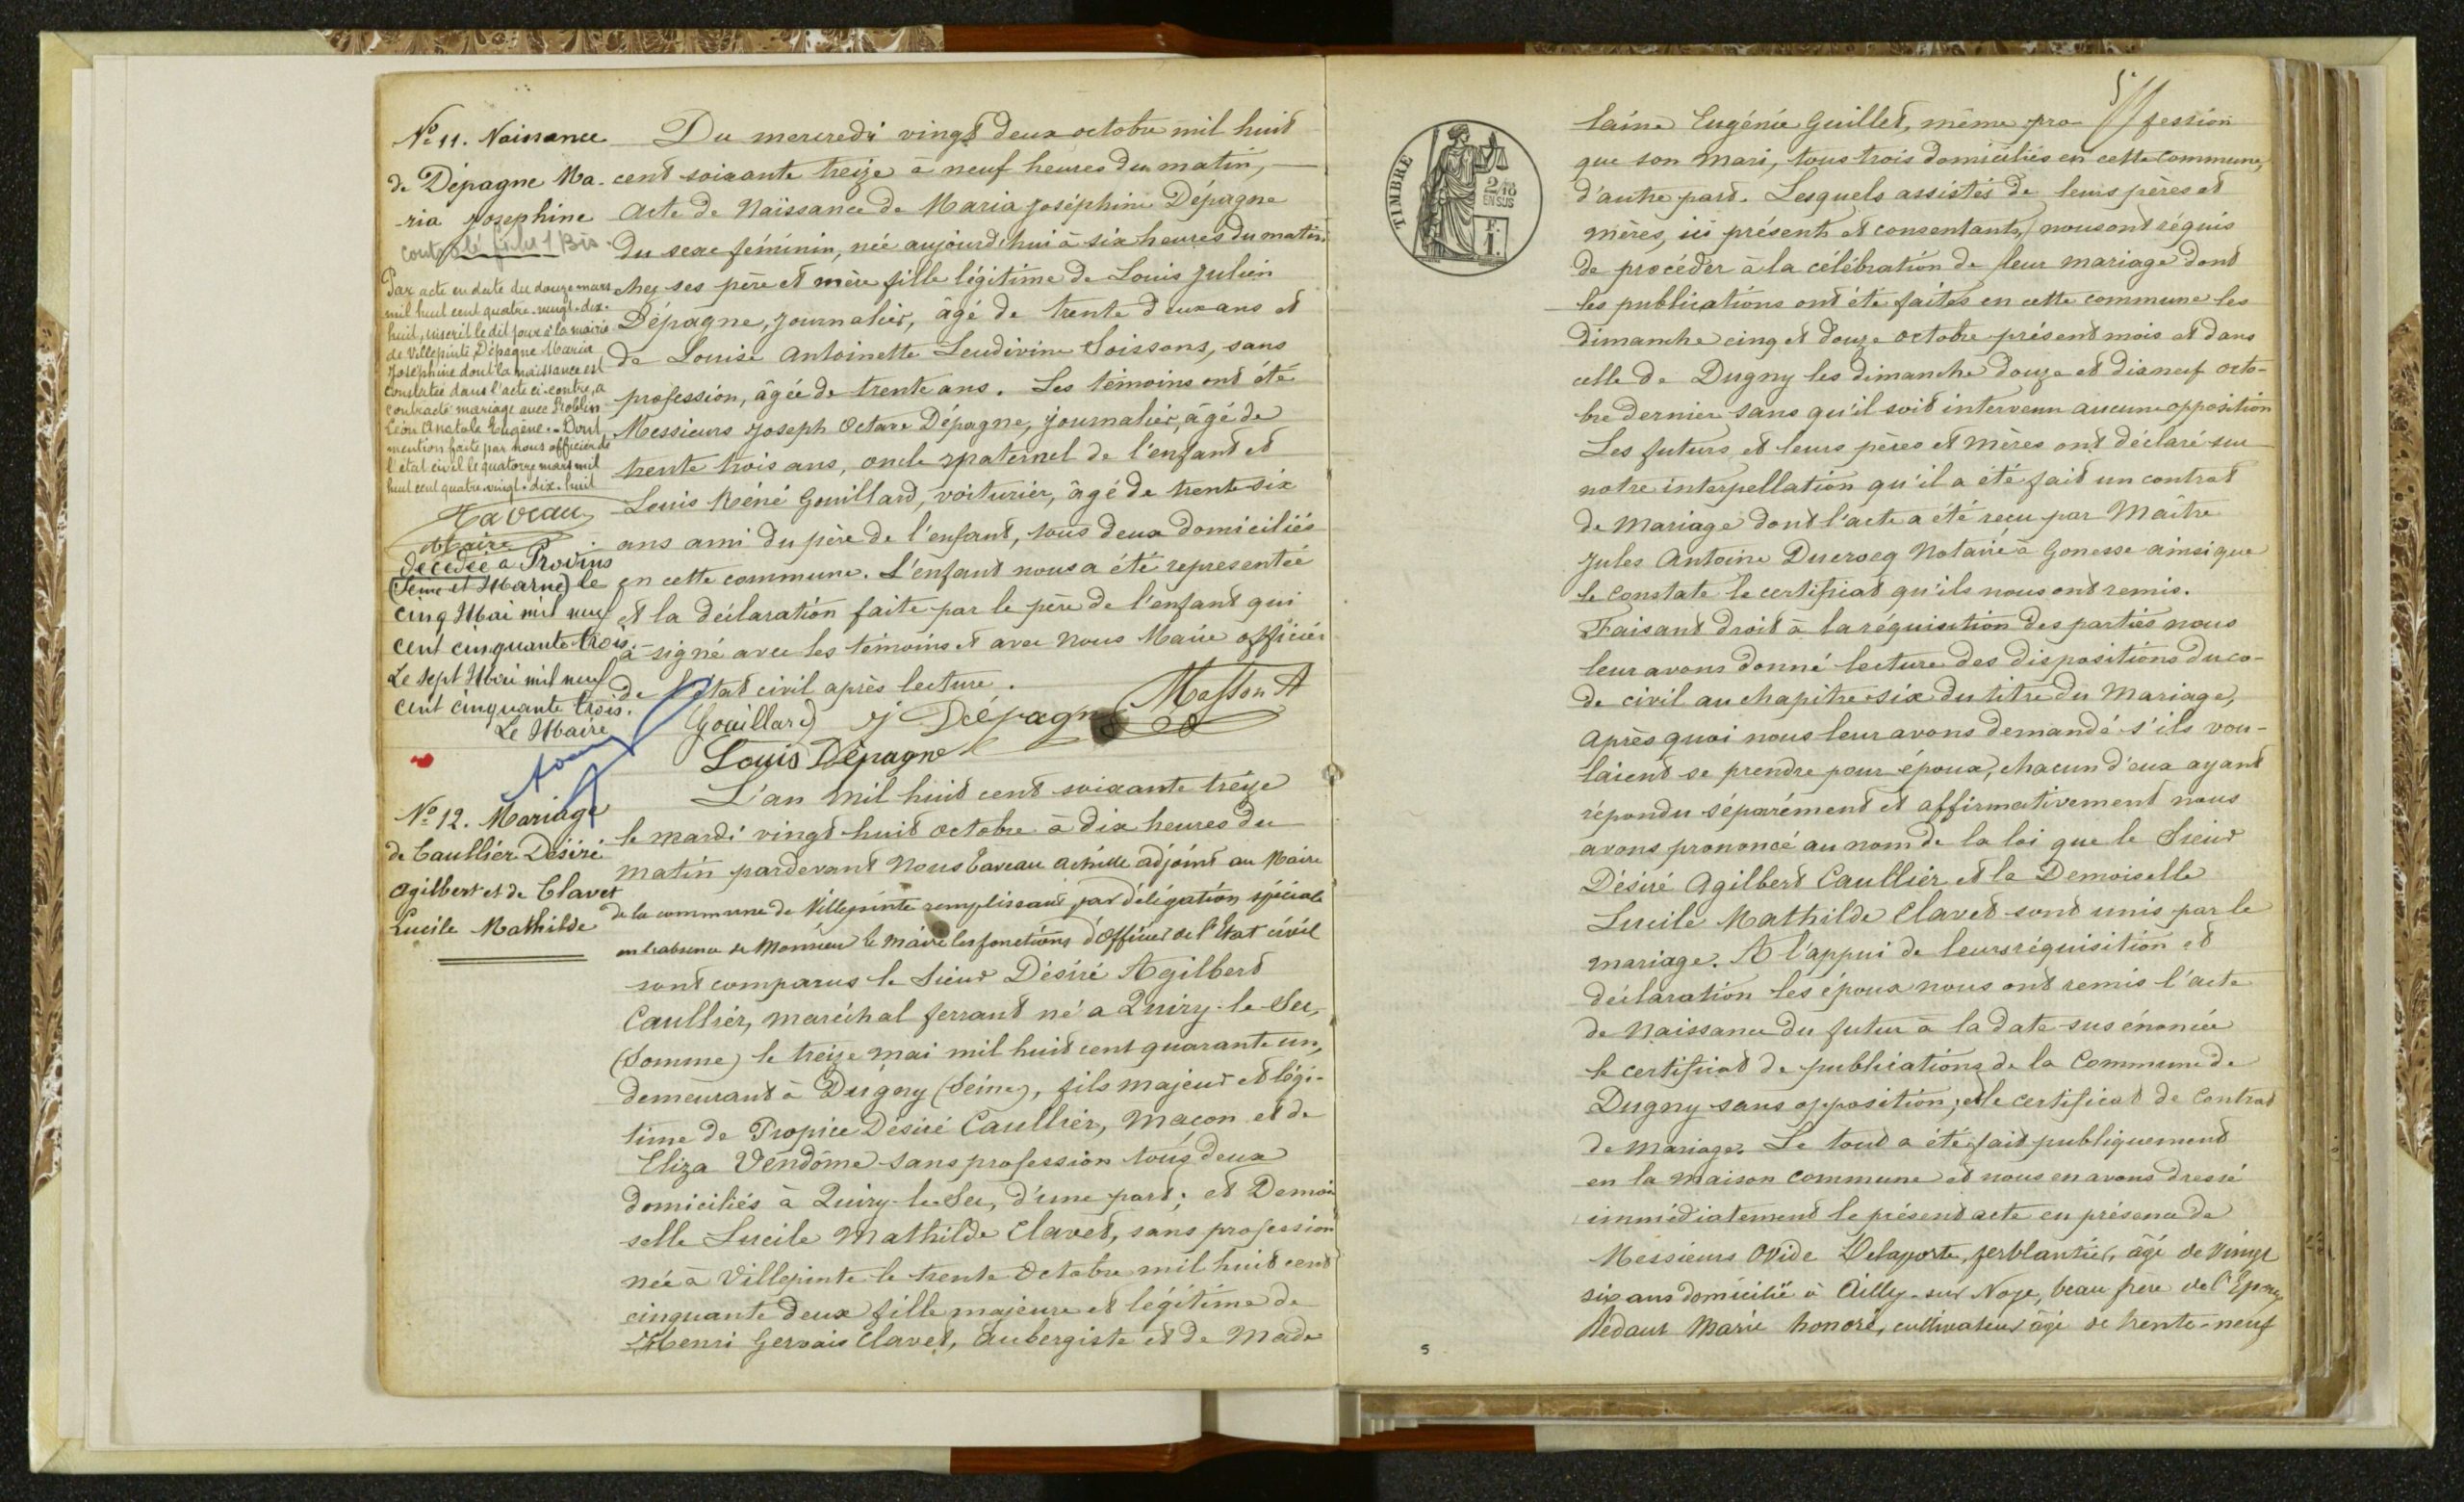 Nº 11. Naissance
de Dépagne Ma-
ria Josephine
Par acte en date du douze mars
mil huit cent quatre-vingt-dix-
huit, inscrit le dit jour à la mairie
de Villepinte, Dépagne Maria
Joséphine dont la naissance est
constatée dans l'acte ci-contre, a
contracté mariage avec Roblin
Léon Anatole Eugène. - Dont
mention faite par nous officier de
l'état civil le quatorze mars mil
huit cent quatre-vingt-dix-huit
Taveau
Maire
décédée à Provins
(Seine et Marne) le
cinq Mai mil neuf
cent cinquante trois.
Le sept Mai mil neuf
cent cinquante trois.
Le Maire
Du mercredi vingt deux octobre mil huit
cent soixante treize à neuf heures du matin,
Acte de Naissance de Maria Joséphine Dépagne
du sexe féminin, née aujourd'hui à six heures du matin
chez ses père et mère fille légitime de Louis Julien
Dépagne, Journalier, âgé de trente deux ans et
de Louise Antoinette Leudivine Soissons, sans
profession, âgée de trente ans. Les témoins ont été
Messieurs Joseph Octave Dépagne, journalier, âgé de
trente trois ans, oncle paternel de l'enfant et
Louis Réné Gouillard, voiturier, âgé de trente six
ans ami du père de l'enfant, tous deux domiciliés
en cette commune. L'enfant nous a été representée
et la déclaration faite par le père de l'enfant qui
a signé avec les témoins et avec nous Maire officier
de l'état civil après lecture.
Gouillard J Dépagne Masson A
Louis Dépagne
Nº 12. Mariage
de Caullier Désiré
Agilbert et de Clavet
Lucile Mathilde
L'an mil huit cent soixante treize
le mardi vingt huit octobre à dix heures du
matin pardevant Nous Taveau Achille adjoint au Maire
de la commune de Villepinte remplissant par délégation spéciale
en l'absence de Monsieur le Maire les fonctions d'Officier de l'Etat civil
sont comparus le Sieur Désiré Agilbert
Caullier, maréchal ferrant né à Quiry-le-Sec,
(Somme) le treize mai mil huit cent quarante un,
demeurant à Dugny (Seine), fils majeur et légi-
time de Propice Désiré Caullier, Maçon et de
Eliza Vendôme sans profession tous deux
domiciliés à Quiry-le-Sec, d'une part; et Demoi
selle Lucile Mathilde Clavet, sans profession
née à Villepinte le trente Octobre mil huit cent
cinquante deux fille majeure et légitime de
Henri Gervais Clavet, Aubergiste et de Made
TIMBRE
2/10
EN SUS
5
laine Eugénie Guillet, même pro-fession
que son mari, tous trois domiciliés en cette commune,
d'autre part. Lesquels assistés de leurs pères et
mères, ici présents et consentants, nous ont réquis
de procéder à la célébration de leur mariage dont
les publications ont été faites en cette commune les
dimanche cinq et douze octobre présent mois et dans
celle de Dugny les dimanche douze et dix neuf octo-
bre dernier sans qu'il soit intervenu aucune opposition
Les futurs et leurs pères et mères ont déclaré sur
notre interpellation qu'il a été fait un contrat
de Mariage dont l'acte a été reçu par Maître
Jules Antoine Ducrocq Notaire à Gonesse ainsi que
le constate le certificat qu'ils nous ont remis.
Faisant droit à la réquisition des parties nous
leur avons donné lecture des dispositions du co-
de civil au chapitre six du titre du Mariage,
Après quoi nous leur avons demandé s'ils vou-
laient se prendre pour époux, chacun d'eux ayant
répondu séparément et affirmativement nous
avons prononcé au nom de la loi que le Sieur
Désiré Agilbert Caullier et la Demoiselle
Lucile Mathilde Clavet sont unis par le
mariage. A l'appui de leurs réquisition et
déclaration les époux nous ont remis l'acte
de Naissance du futur à la date sus énoncée
le certificat de publications de la Commune de
Dugny sans opposition, et le certificat de Contrat
de Mariage. Le tout a été fait publiquement
en la Maison commune et nous en avons dressé
immédiatement le présent acte en présence de
Messieurs Ovide Delaporte, ferblantier, âgé de Vingt
six ans domicilié à Ailly-sur Noye, beau frère de l'Epoux
Bedaut Marie honoré, cultivateur âgé de trente-neuf
5